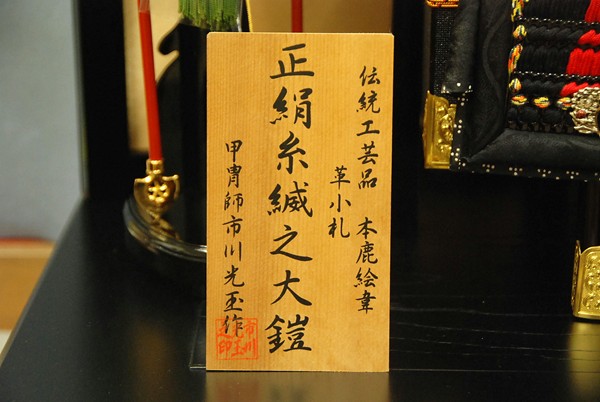 伝統工芸品 本鹿絵韋
革小札
正絹糸縅之大鎧
甲冑師市川光玉作